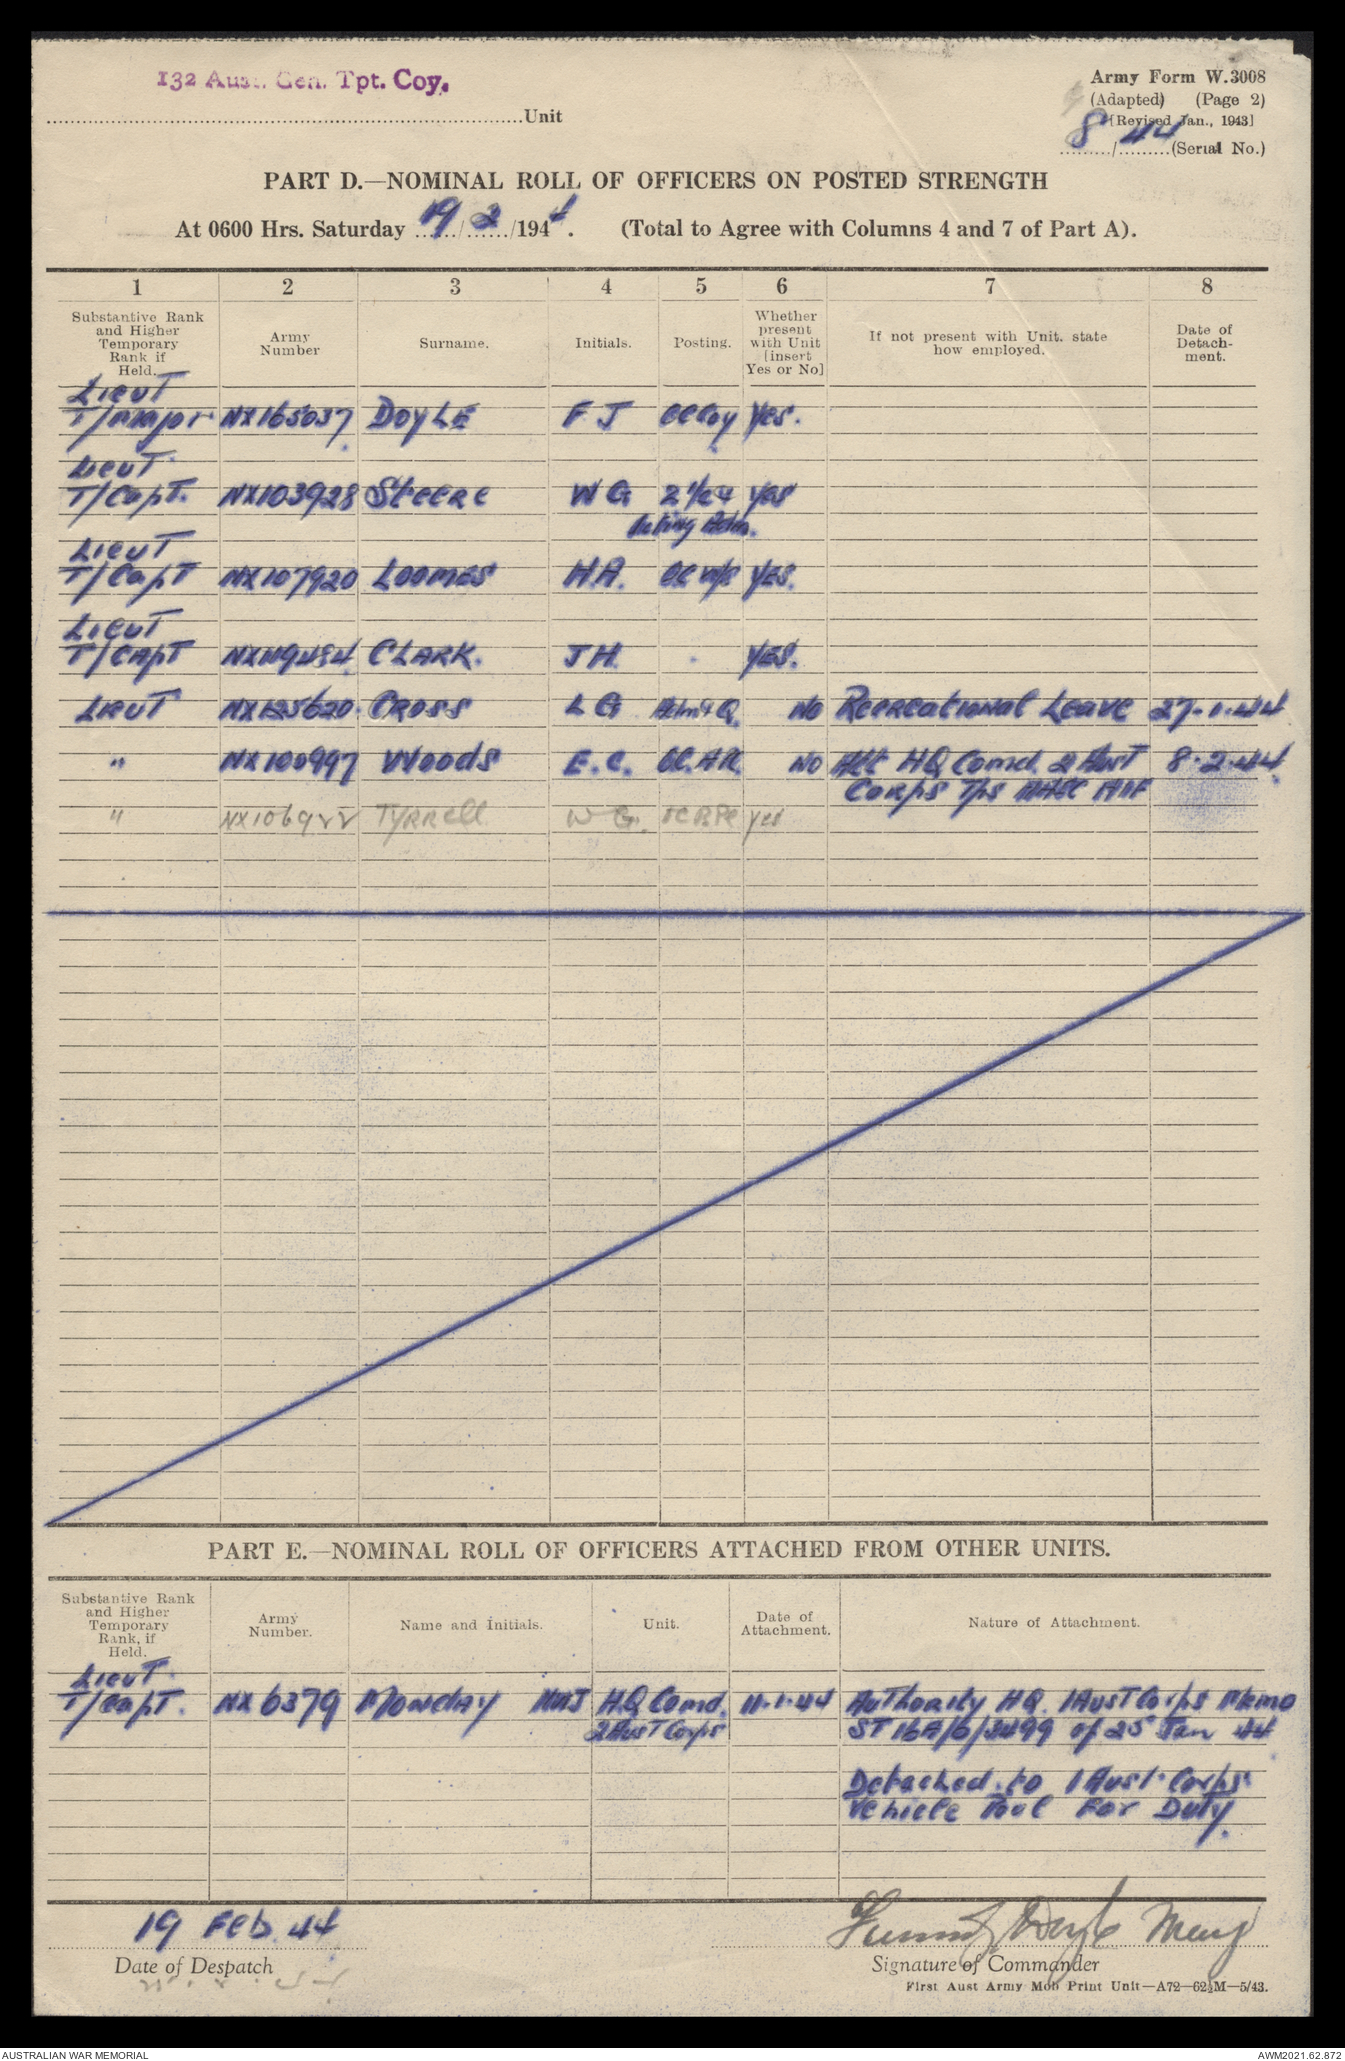 132 Aust. Gen. Tpt. Coy.
Unit
Army Form W.3008
(Adapted) (Page 2)
[Revised Jan., 1943]
8/44 (Serial No.)
PART D.—NOMINAL ROLL OF OFFICERS ON POSTED STRENGTH
At 0600 Hrs. Saturday 19/2/1944. (Total to Agree with Columns 4 and 7 of Part A).
1 2 3 4 5 6 7 8
Substantive Rank and Higher Temporary Rank if Held.
Army Number
Surname.
Initials.
Posting.
Whether present with Unit [insert Yes or No]
If not present with Unit. state how employed.
Date of Detach-ment.
Lieut
T/Major NX165037 DOYLE F J OC Coy Yes.
Lieut
T/Capt. NX103928 Steere W G 2 i/c Yes
Acting Adm.
Lieut
T/Capt NX107920 LOOMES H.A. OC W/S YES.
Lieut
T/Capt NX119484 CLARK. J H. YES.
Lieut NX125620 CROSS L G Adm & Q. NO Recreational Leave 27-1-44
" NX100997 Woods E. C. NO Att HQ Comd 2 Aust 8.2.44
Corps Tps AASC AIF
" NX106922 Tyrrell W G. Yes
PART E.—NOMINAL ROLL OF OFFICERS ATTACHED FROM OTHER UNITS.
Substantive Rank and Higher Temporary Rank, if Held.
Army Number.
Name and Initials.
Unit.
Date of Attachment.
Nature of Attachment.
Lieut.
T/Capt. NX 6379 Monday H.Q Comd. 11.1.44 Authority HQ. 1 Aust Corps Memo
2 Aust Corps ST16A/6/3499 of 25 Jan 44
Detached to 1 Aust. Corps
Vehicle Pool For Duty.
19 Feb. 44
Date of Despatch
Doyle Major
Signature of Commander
First Aust Army Mob Print Unit—A72—62½M—5/43.
AUSTRALIAN WAR MEMORIAL
AWM2021.62.872